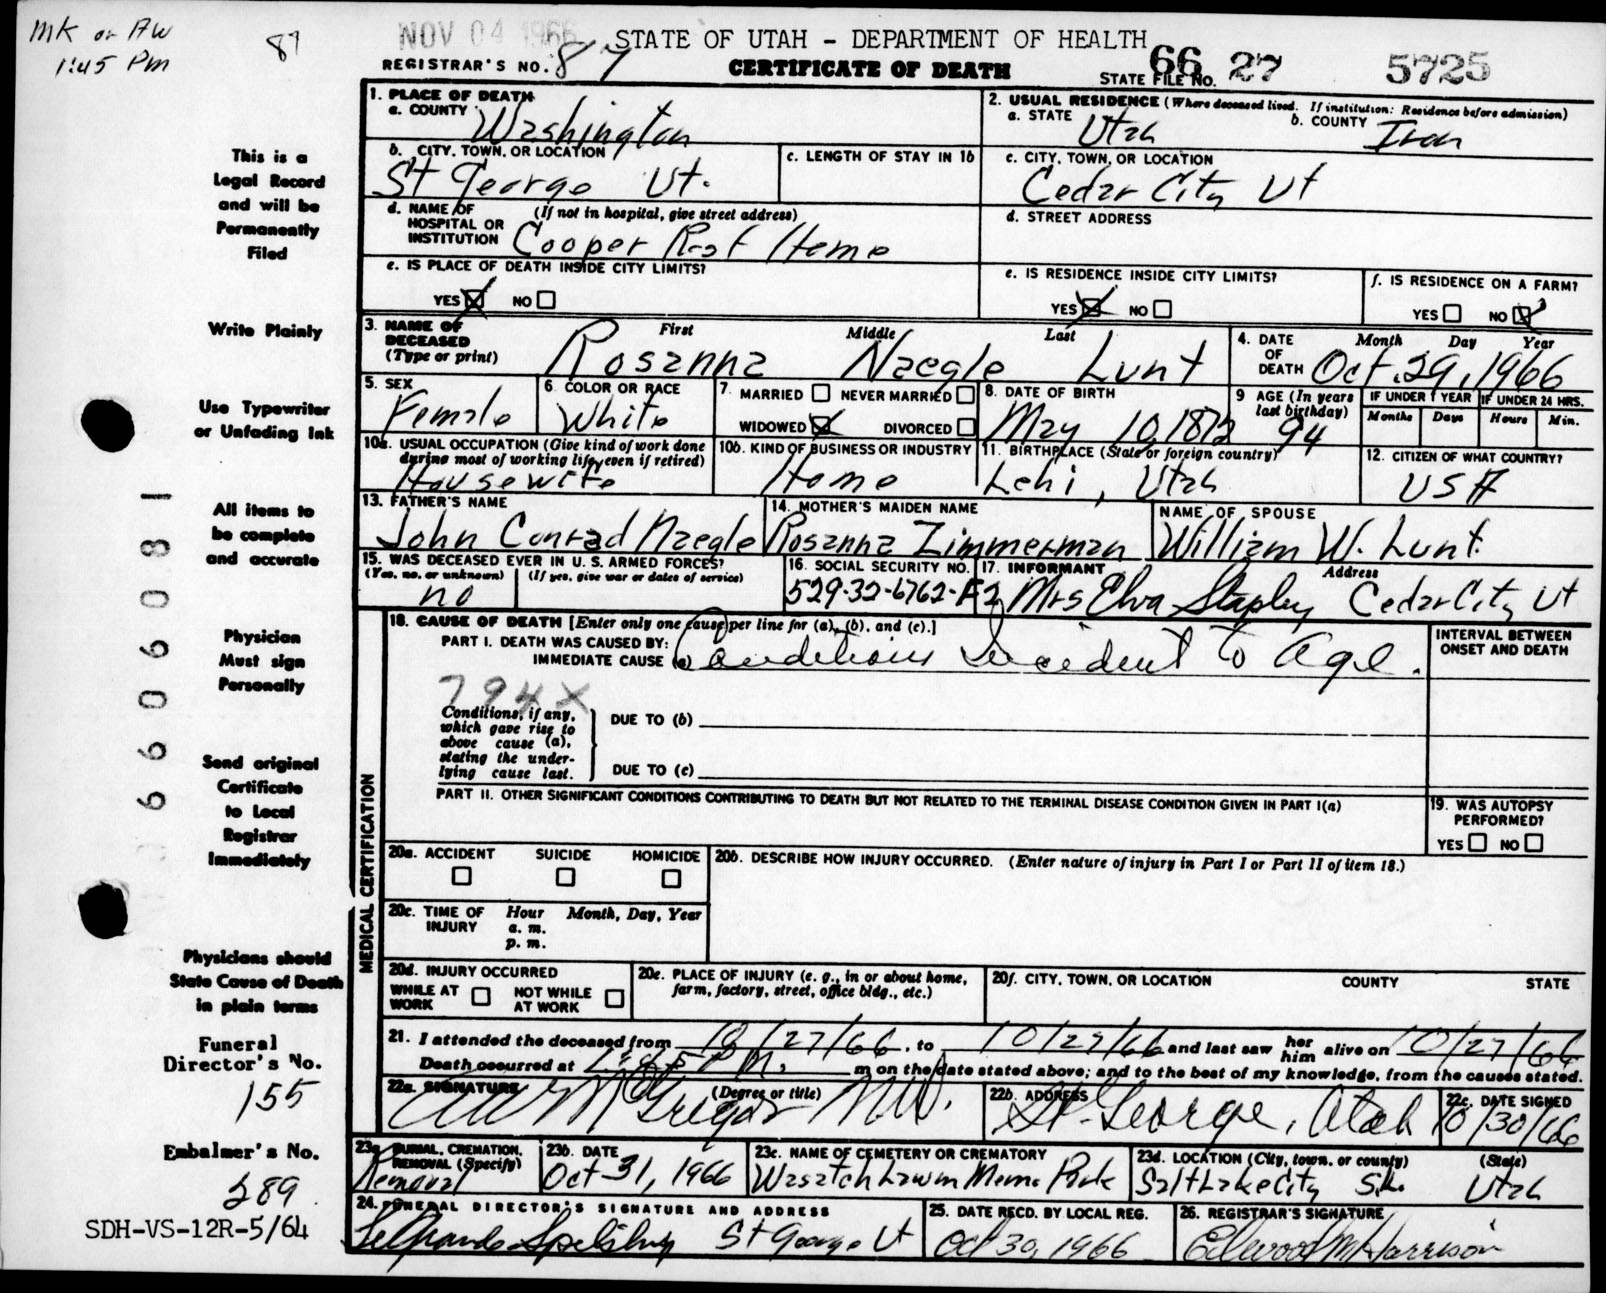 MK or AW
1:45 PM
87
NOV 04 1966
STATE OF UTAH - DEPARTMENT OF HEALTH
REGISTRAR'S NO. 87
CERTIFICATE OF DEATH
STATE FILE NO. 66 27 5725
This is a
Legal Record
and will be
Permanently
Filed
Write Plainly
Use Typewriter
or Unfading Ink
All items to
be complete
and accurate
Physician
Must sign
Personally
Send original
Certificate
to Local
Registrar
Immediately
Physicians should
State Cause of Death
in plain terms
Funeral
Director's No.
155
Embalmer's No.
289
SDH-VS-12R-5/64
1. PLACE OF DEATH
a. COUNTY Washington
2. USUAL RESIDENCE (Where deceased lived. If institution: Residence before admission)
a. STATE Utah b. COUNTY Iron
b. CITY, TOWN, OR LOCATION
St George Ut.
c. LENGTH OF STAY IN 1b
c. CITY, TOWN, OR LOCATION
Cedar City Ut
d. NAME OF HOSPITAL OR INSTITUTION (If not in hospital, give street address)
Cooper Rest Home
d. STREET ADDRESS
e. IS PLACE OF DEATH INSIDE CITY LIMITS?
YES NO
e. IS RESIDENCE INSIDE CITY LIMITS?
YES NO
f. IS RESIDENCE ON A FARM?
YES NO
3. NAME OF DECEASED (Type or print)
First Middle Last
Rosanna Naegle Lunt
4. DATE OF DEATH Month Day Year
Oct. 29, 1966
5. SEX
Female
6. COLOR OR RACE
White
7. MARRIED NEVER MARRIED
WIDOWED DIVORCED
8. DATE OF BIRTH
May 10, 1872
9 AGE (In years last birthday)
94
IF UNDER 1 YEAR IF UNDER 24 HRS.
Months Days Hours Min.
10a. USUAL OCCUPATION (Give kind of work done during most of working life, even if retired)
Housewife
10b. KIND OF BUSINESS OR INDUSTRY
Home
11. BIRTHPLACE (State or foreign country)
Lehi, Utah
12. CITIZEN OF WHAT COUNTRY?
USA
13. FATHER'S NAME
John Conrad Naegle
14. MOTHER'S MAIDEN NAME
Rosanna Zimmerman
NAME OF SPOUSE
William W. Lunt.
15. WAS DECEASED EVER IN U. S. ARMED FORCES?
(Yes, no, or unknown) (If yes, give war or dates of service)
no
16. SOCIAL SECURITY NO.
529-32-6762-F2
17. INFORMANT Address
Mrs Elva Stapley Cedar City Ut
18. CAUSE OF DEATH [Enter only one cause per line for (a), (b), and (c).]
PART I. DEATH WAS CAUSED BY:
IMMEDIATE CAUSE (a) Conditions Incident to Age.
INTERVAL BETWEEN ONSET AND DEATH
794X
Conditions, if any, which gave rise to above cause (a), stating the underlying cause last.
DUE TO (b)
DUE TO (c)
PART II. OTHER SIGNIFICANT CONDITIONS CONTRIBUTING TO DEATH BUT NOT RELATED TO THE TERMINAL DISEASE CONDITION GIVEN IN PART I(a)
19. WAS AUTOPSY PERFORMED?
YES NO
MEDICAL CERTIFICATION
20a. ACCIDENT SUICIDE HOMICIDE
20b. DESCRIBE HOW INJURY OCCURRED. (Enter nature of injury in Part I or Part II of item 18.)
20c. TIME OF INJURY Hour Month, Day, Year
a. m.
p. m.
20d. INJURY OCCURRED
WHILE AT WORK NOT WHILE AT WORK
20e. PLACE OF INJURY (e. g., in or about home, farm, factory, street, office bldg., etc.)
20f. CITY, TOWN, OR LOCATION COUNTY STATE
21. I attended the deceased from 10/27/66, to 10/27/66 and last saw her him alive on 10/27/66
Death occurred at 1:45 PM. m on the date stated above; and to the best of my knowledge, from the causes stated.
22a. SIGNATURE (Degree or title)
AW McGregor MD.
22b. ADDRESS
St. George, Utah
22c. DATE SIGNED
10/30/66
23a. BURIAL, CREMATION, REMOVAL (Specify)
Removal
23b. DATE
Oct 31, 1966
23c. NAME OF CEMETERY OR CREMATORY
Wasatch Lawn Mem. Park
23d. LOCATION (City, town, or county) (State)
Salt Lake City S.L. Utah
24. FUNERAL DIRECTOR'S SIGNATURE AND ADDRESS
LeGrande Spilsbury St George Ut
25. DATE RECD. BY LOCAL REG.
Oct 30, 1966
26. REGISTRAR'S SIGNATURE
Ellwood M Harrison